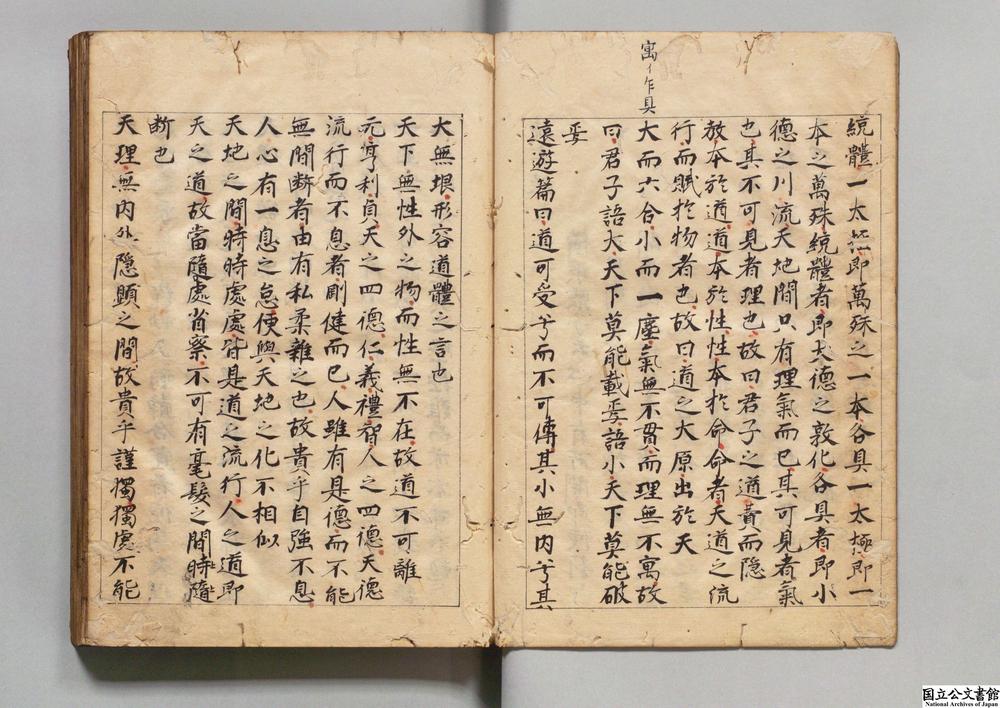 寓イ乍具
統體一太極即萬殊之一本各具一太極即一
本之萬殊統體者即大德之敦化各具者即小
德之川流天地間只有理氣而已其可見者氣
也其不可見者理也故曰君子之道費而隠
教本於道道本於性性本於命命者天道之流
行而賦於物者也故曰道之大原出於天
大而六合小而一塵氣無不貫而理無不寓故
曰君子語大天下莫能載焉語小天下莫能破
焉
遠遊篇曰道可受兮而不可傳其小無内兮其
大無垠形容道體之言也
天下無性外之物而性無不在故道不可離
元亨利貞天之四德仁義禮智人之四德天德
流行而不息者剛健而已人雖有是德而不能
無間断者由有私柔雜之也故貴乎自強不息
人心有一息之怠便與天地之化不相似
天地之間時時處處皆是道之流行人之道即
天之道故當隨處省察不可有毫髮之間時隨
断也
天理無内外隠顕之間故貴乎謹獨獨處不能
国立公文書館
National Archives of Japan